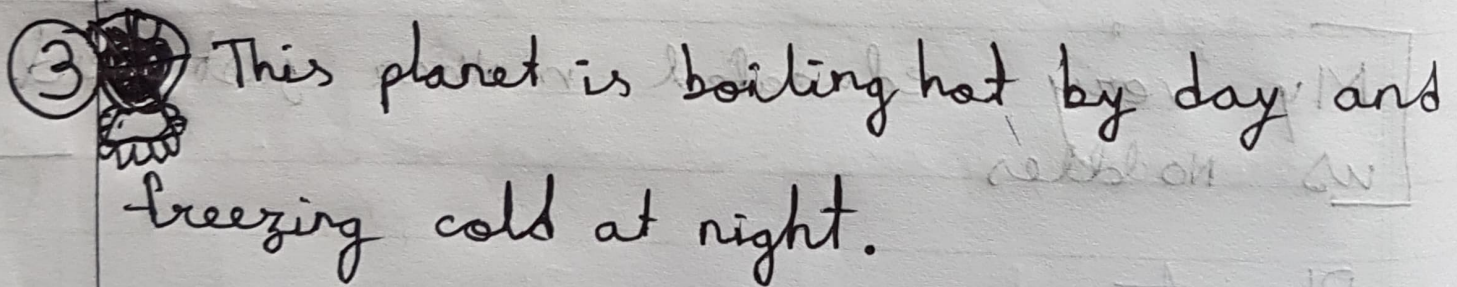 ③ This planet is boiling hot by day and
freezing cold at night.